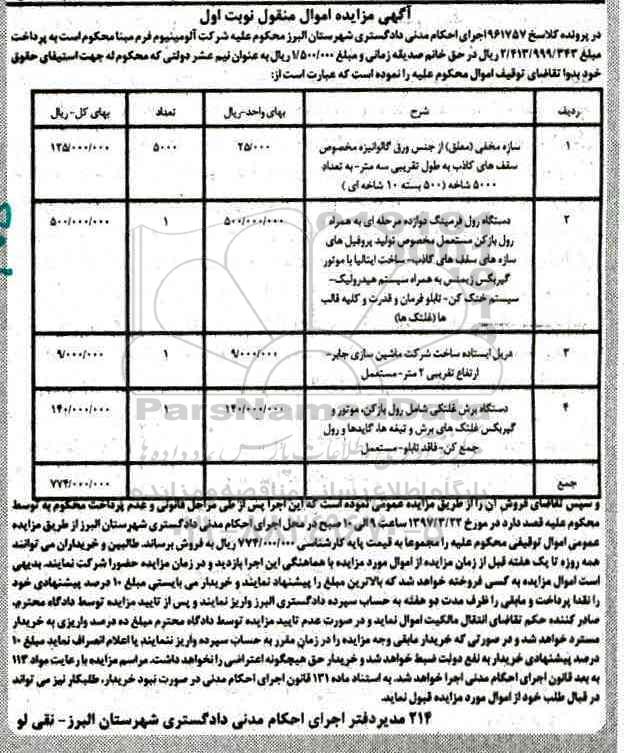 آگهی مزایده اموال منقول نوبت اول
در پرونده کلاسخ ۹۶۱۷۵۷ اجرای احکام مدنی دادگستری شهرستان البرز محکوم علیه شرکت آلومینیوم فرم مبنا محکوم است به پرداخت
مبلغ ۲/۴۱۳/۹۹۹/۳۴۳ ریال در حق خانم صدیقه زمانی و مبلغ ۱/۵۰۰/۰۰۰ ریال به عنوان نیم عشر دولتی که محکوم له جهت استیفای حقوق
خود بدوا تقاضای توقیف اموال محکوم علیه را نموده است که عبارت است از:
ردیف شرح بهای واحد-ریال تعداد بهای کل- ریال
۱ سازه مخفی (معلق) از جنس ورق گالوانیزه مخصوص ۲۵/۰۰۰ ۵۰۰۰ ۱۲۵/۰۰۰/۰۰۰
سقف های کاذب به طول تقریبی سه متر- به تعداد
۵۰۰۰ شاخه (۵۰۰ بسته ۱۰ شاخه ای)
۲ دستگاه رول فرمینگ دوازده مرحله ای به همراه ۵۰۰/۰۰۰/۰۰۰ ۱ ۵۰۰/۰۰۰/۰۰۰
رول بازکن مستعمل مخصوص تولید پروفیل های
سازه های سقف های کاذب- ساخت ایتالیا با موتور
گیربکس زیمنس به همراه سیستم هیدرولیک-
سیستم خنک کن- تابلو فرمان و قدرت و کلیه قالب
ها (غلتک ها)
۳ دریل ایستاده ساخت شرکت ماشین سازی جابر- ۹/۰۰۰/۰۰۰ ۱ ۹/۰۰۰/۰۰۰
ارتفاع تقریبی ۲ متر- مستعمل
۴ دستگاه برش غلتکی شامل رول بازکن، موتور و ۱۴۰/۰۰۰/۰۰۰ ۱ ۱۴۰/۰۰۰/۰۰۰
گیربکس غلتک های برش و تیغه ها، گایدها و رول
جمع کن- فاقد تابلو- مستعمل
جمع ۷۷۴/۰۰۰/۰۰۰
و سپس تقاضای فروش آن را از طریق مزایده عمومی نموده است که این اجرا پس از طی مراحل قانونی و عدم پرداخت محکوم به توسط
محکوم علیه قصد دارد در مورخ ۱۳۹۷/۳/۲۲ ساعت ۹ الی ۱۰ صبح در محل اجرای احکام مدنی دادگستری شهرستان البرز از طریق مزایده
عمومی اموال توقیفی محکوم علیه را مجموعا به قیمت پایه کارشناسی ۷۷۴/۰۰۰/۰۰۰ ریال به فروش برساند. طالبین و خریداران می توانند
همه روزه تا یک هفته قبل از زمان مزایده از اموال مورد مزایده با هماهنگی این اجرا بازدید و در زمان مزایده حضورا شرکت نمایند. بدیهی
است اموال مزایده به کسی فروخته خواهد شد که بالاترین مبلغ را پیشنهاد نمایند و خریدار می بایستی مبلغ ۱۰ درصد پیشنهادی خود
را نقدا پرداخت و مابقی را ظرف مدت دو هفته به حساب سپرده دادگستری البرز واریز نمایند و پس از تایید مزایده توسط دادگاه محترم،
صادر کننده حکم تقاضای انتقال مالکیت اموال نماید و در صورت عدم تایید مزایده توسط دادگاه محترم مبلغ ده درصد واریزی به خریدار
مسترد خواهد شد و در صورتی که خریدار مابقی وجه مزایده را در زمان مقرر به حساب سپرده واریز ننمایند یا اعلام انصراف نماید مبلغ ۱۰
درصد پیشنهادی خریدار به نفع دولت ضبط خواهد شد و خریدار حق هیچگونه اعتراضی را نخواهد داشت. مراسم مزایده با رعایت مواد ۱۱۳
به بعد قانون اجرای احکام مدنی اجرا خواهد شد. به استناد ماده ۱۳۱ قانون اجرای احکام مدنی در صورت نبود خریدار، طلبکار نیز می تواند
در قبال طلب خود از اموال مورد مزایده قبول نماید.
۲۱۴ مدیر دفتر اجرای احکام مدنی دادگستری شهرستان البرز- نقی لو
ParsNamadData